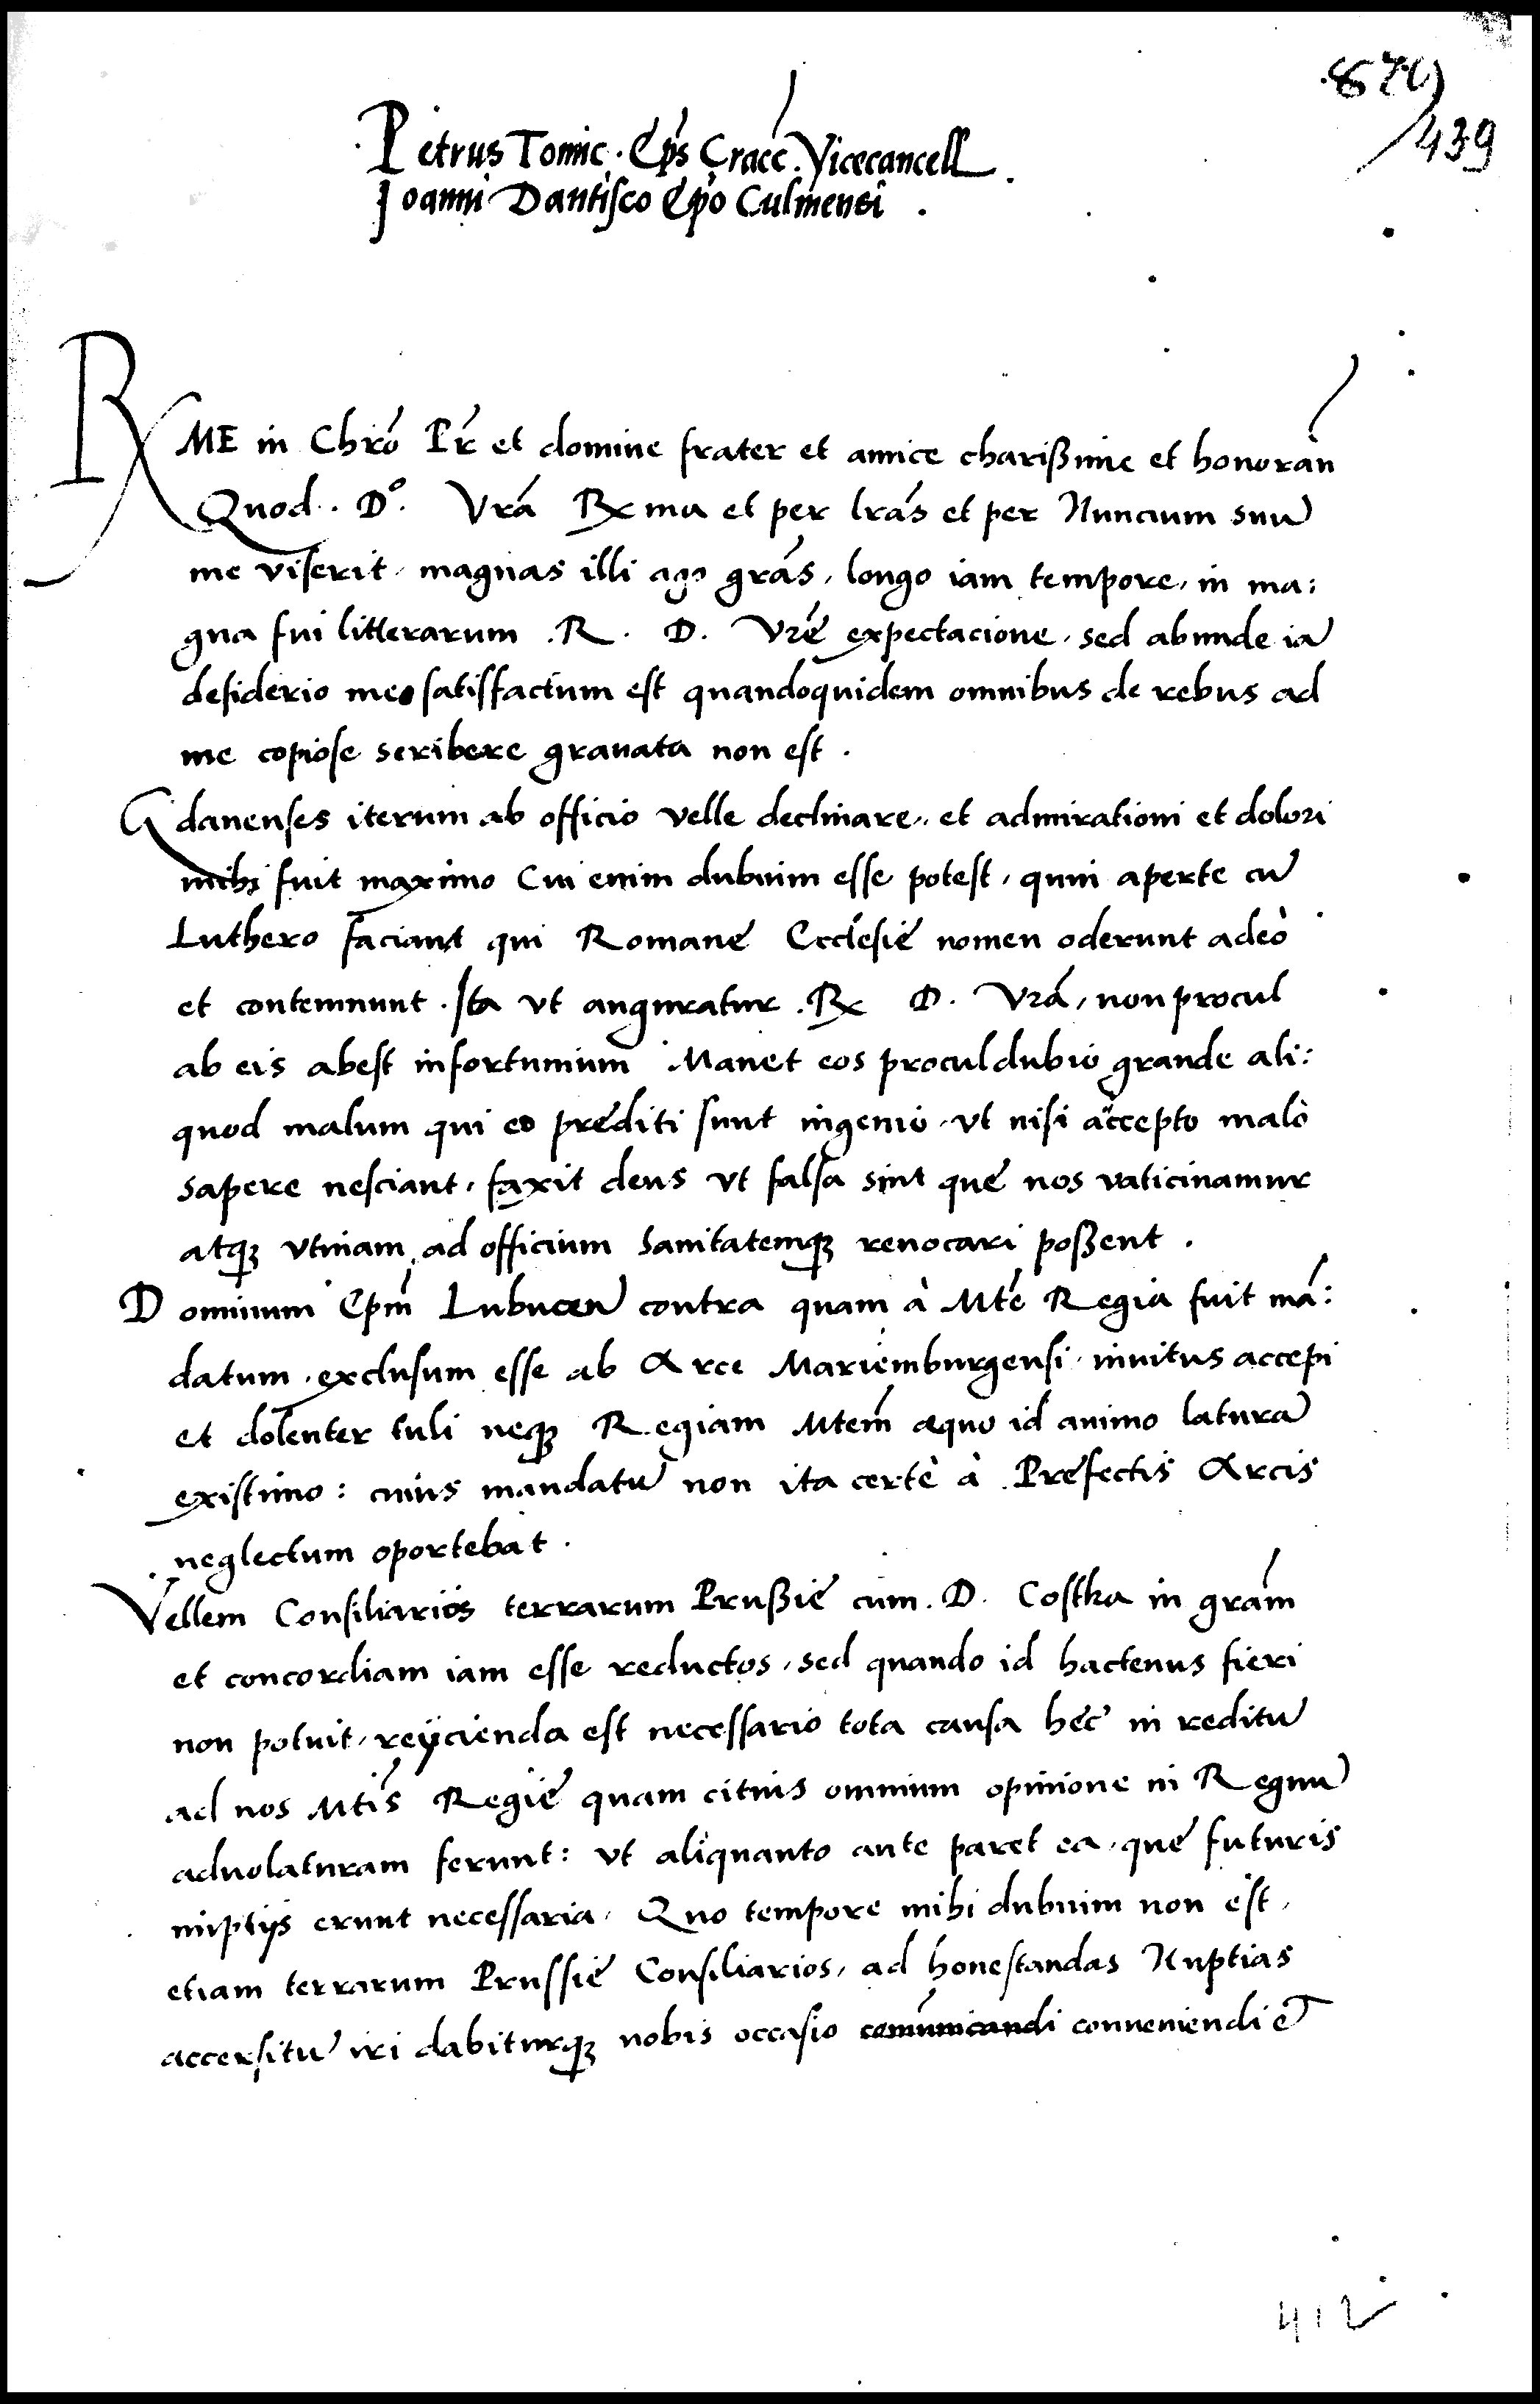 879
439
Petrus Tomic. Eps Cracc. Vicecancell.
Joanni Dantisco Epo Culmensi.
RME in Chro Pr et domine frater et amice charissime et honoran
Quod. Do. Vra Rx ma et per lras et per Nuncium suu
me viserit, magnas illi ago gras, longo iam tempore, in ma:
gna fui litterarum .R. D. Vre expectacione, sed abunde ia
desiderio meo satisfactum est quandoquidem omnibus de rebus ad
me copiose scribere gravata non est.
Gdanenses iterum ab officio velle declinare, et admirationi et dolori
mihi fuit maximo Cui enim dubium esse potest, quin aperte cu
Luthero faciant qui Romane Ecclesie nomen oderunt adeò
et contemnunt. Ita vt auguratur. Rx D. Vra, non procul
ab eis abest infortunium Manet eos proculdubio grande ali:
quod malum qui eo prediti sunt ingenio, vt nisi accepto malo
sapere nesciant, faxit deus vt falsa sint que nos vaticinamur
atq; vtinam ad officium sanitatemq; reuocari possent.
Dominum Epm Lubucen contra quam à Mte Regia fuit ma:
datum, exclusum esse ab Arce Mariemburgensi, inuitus accepi
et dolenter tuli neq; Regiam Mtem aequo id animo latura
existimo: cuius mandatu non ita certè à Prefectis Arcis
neglectum oportebat.
Vellem Consiliarios terrarum Prussie cum. D. Costka in gram
et concordiam iam esse reductos, sed quando id hactenus fieri
non potuit, reijcienda est necessario tota causa hec in reditu
ad nos Mtis Regie quam citius omnium opinione in Regnu
aduolaturam ferunt: vt aliquanto ante paret ea, que futuris
nuptijs erunt necessaria, Quo tempore mihi dubium non est,
etiam terrarum Prussie Consiliarios, ad honestandas Nuptias
accersitu iri dabiturq; nobis occasio comunicandi conueniendi et
412